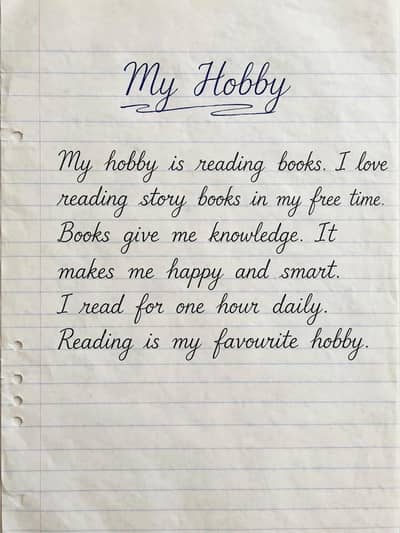 My Hobby
My hobby is reading books. I love
reading story books in my free time.
Books give me knowledge. It
makes me happy and smart.
I read for one hour daily.
Reading is my favourite hobby.